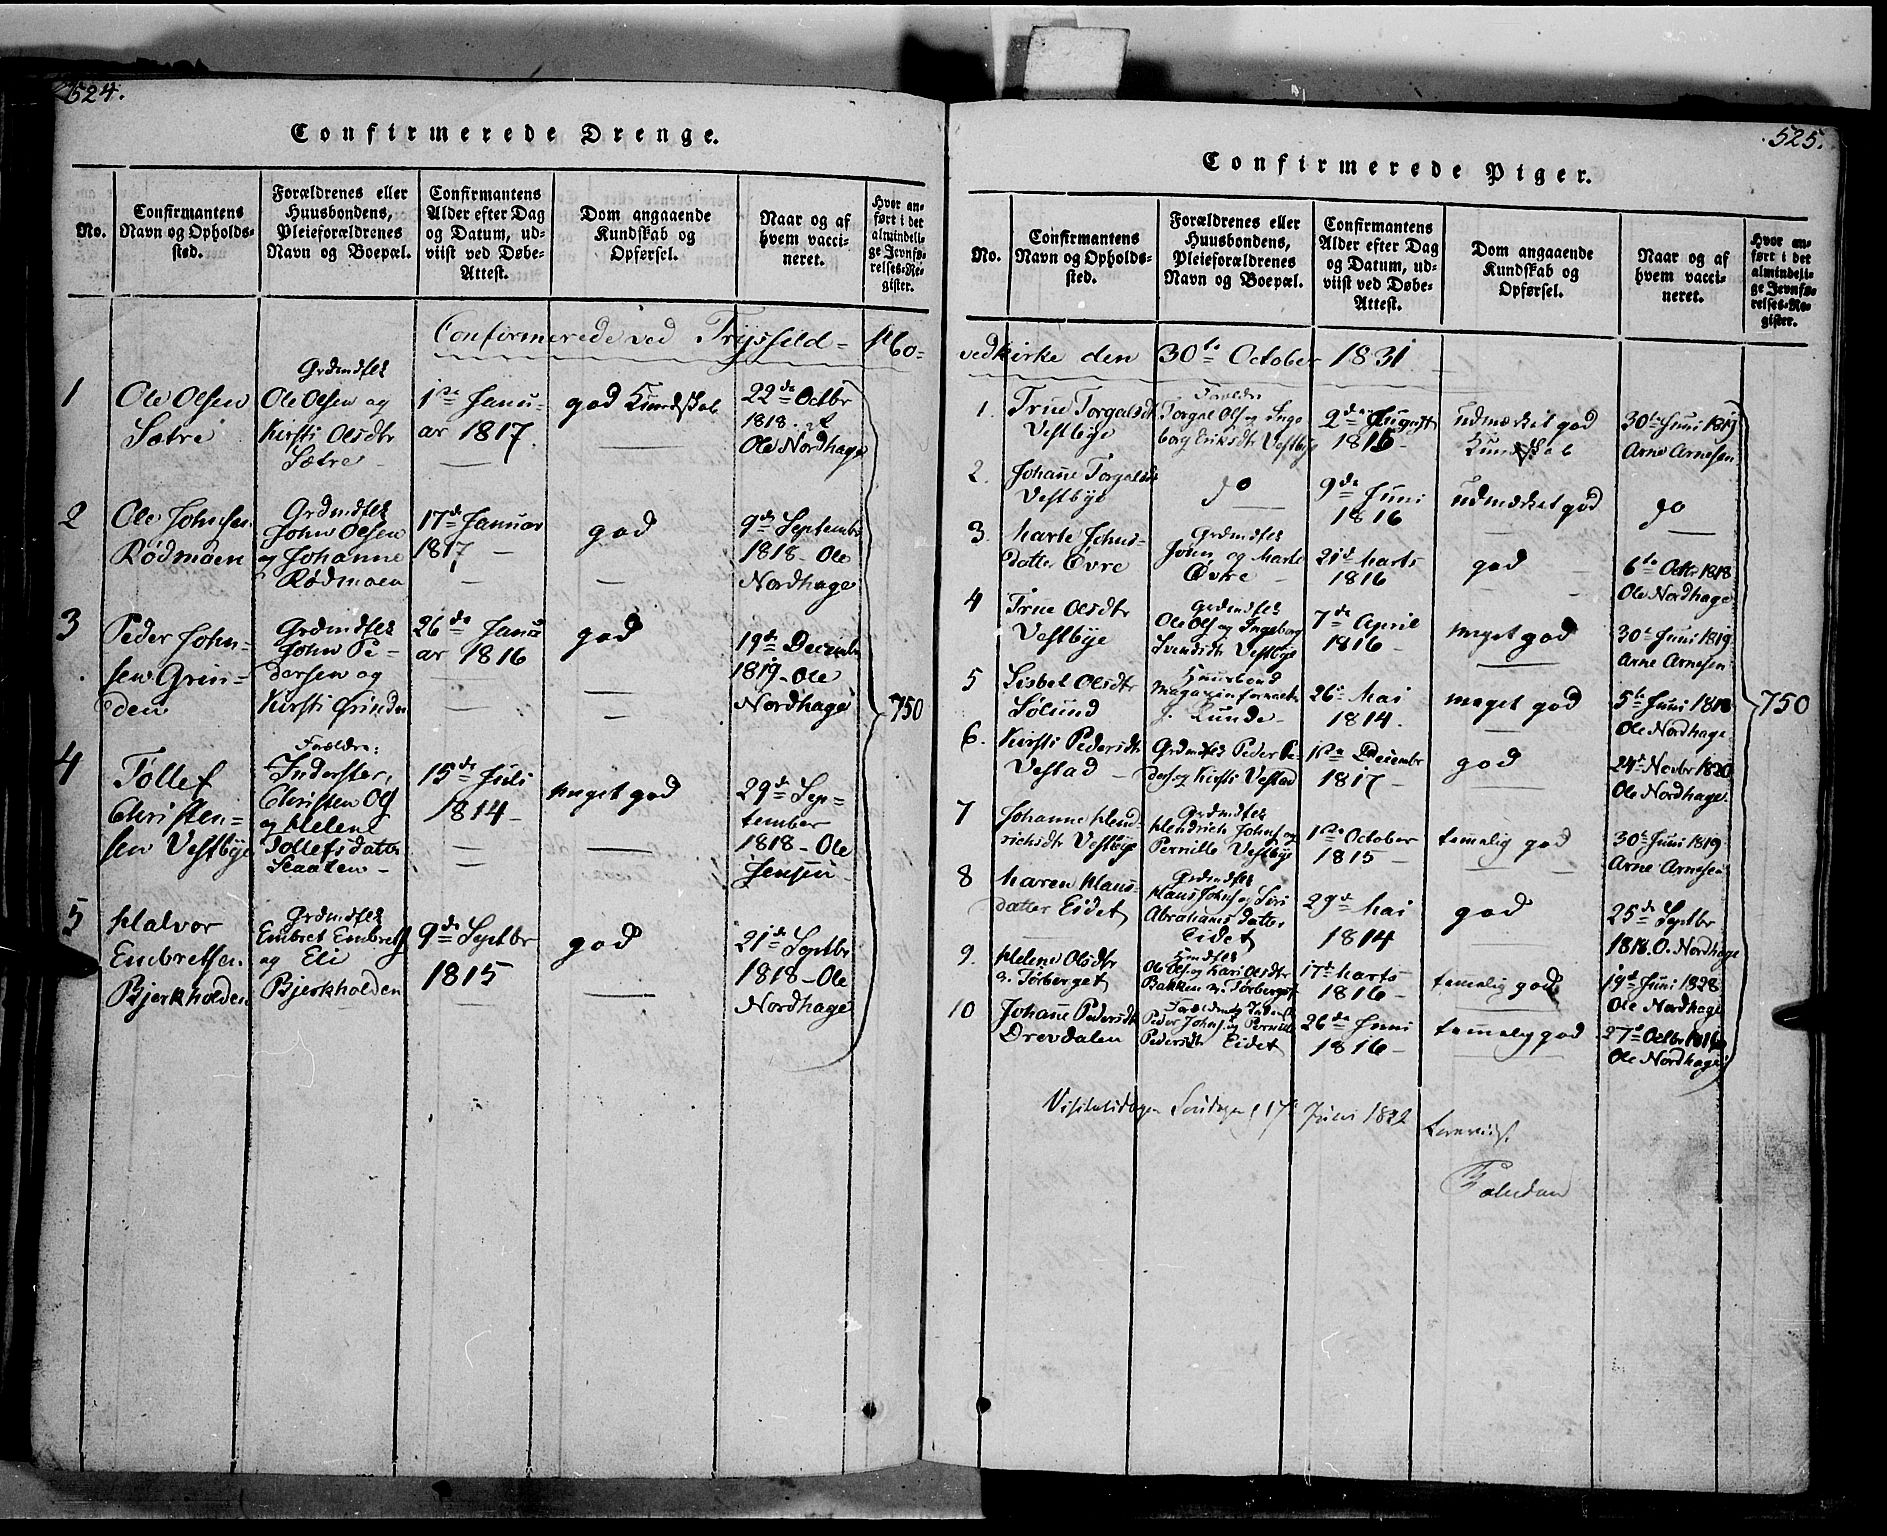 524.
Confirmerede Drenge.
No.
Confirmantens
Navn og Opholds-
sted.
Forældrenes eller
Huusbondens,
Pleieforældrenes
Navn og Boepæl.
Confirmantens
Alder efter Dag
og Datum, ud-
viist ved Døbe-
Attest.
Dom angaaende
Kundskab og
Opførsel.
Naar og af
hvem vacci-
neret.
Hvor an-
ført i det
almindeli-
ge Jevnfø-
relses-Re-
gister.
Confirmerede ved Trysfeld-
1
Ole Olsen
Sætre
Grdmdflk
Ole Olsen og
Kirsti Olsdtr
Sætre
1ste Janu-
ar 1817.
god Kundskab
22de Octbr
1818. af
Ole Nordhage
2
Ole Johnsen
Rödmoen
Grdmdflk
John Olsen
og Johanne
Rödmoen
17de Januar
1817
god
9de Septembr
1818- Ole
Nordhage
3
Peder John-
sen Grin-
den
Grdmdflk
John Pe-
dersen og
Kirsti Grinden
26de Janu
ar 1816
god
19de Decembr
1819- Ole
Nordhage
750
4
Tollef
Christen-
sen Vestbye
Forældre:
Inderster,
Christen Ols
og Helene
Tollefsdatter
Skaaten
15de Juli
1814
meget god
29de Sep-
tember
1818- Ole
Jensen
5
Halvor
Embretsen
Bjerkholden
Grdmdflk
Embret Embrets
og Eli
Bjerkholden
9de Septbr
1815
god
21de Septbr
1818- Ole
Nordhage
525.
Confirmerede Piger.
No.
Confirmantens
Navn og Opholds-
sted.
Forældrenes eller
Huusbondens,
Pleieforældrenes
Navn og Boepæl.
Confirmantens
Alder efter Dag
og Datum, ud-
viist ved Døbe-
Attest.
Dom angaaende
Kundskab og
Opførsel.
Naar og af
hvem vacci-
neret.
Hvor an-
ført i det
almindeli-
ge Jevnfø-
relses-Re-
gister.
vedkirke den 30te October 1831
1.
True Torgalsdt
Vestbye
Forældre
Torgal Ols og Inge
borg Eriksdtr Vestbye
2de August
1815
udmærket god
Kundskab
30te Juni 1819
Arne Arnesen
2.
Johane Torgalsdt
Vestbye
do
9de Juni
1816
udmærket god
do
3.
Marte Johns-
datter Øvre
Grdmdflk
John og Marte
Øvre
21de Marts
1816
god
6te Octbr 1818
Ole Nordhage
4
True Olsdtr
Vestbye
Grdmdflk
Ole Ols og Ingeborg
Svendsdtr Vestbye
7de April
1816
meget god
30te Juni 1819
Arne Arnesen
5
Lisbet Olsdtr
Sölund
Huusbond
Magazinforvalter
J. Lunde
26de Mai
1814.
meget god
5te Juni 1818
Ole Nordhage
750
6.
Kirsti Pedersdtr
Vestad
Grdmdflk Peder Pe-
ders og Kirsti Vestad
1ste Decembr
1817
god
24de Novbr 1820
Ole Nordhage
7
Johanne Hend-
richsdtr Vestbye
Grdmdflk
Hendrich Johns og
Pernille Vestbye
1ste October
1815
temmelig god
30te Juni 1819
Arne Arnesen
8
Maren Hans-
datter Eidet
Grdmdflk
Hans Johns og Siri
Abrahamsdatter
Eidet
29de Mai
1814
god
25de Septbr
1818. O. Nordhage
9.
Helene Olsdtr
v. Törberget
Ole Ols og Kari Olsdtr
Bakken v. Törberget
17de Marts
1816
temmelig god
19de Juni 1828
Ole Nordhage
10
Johane Pedersdt
Drevdalen
Peder Johns og Pernille
Pedersdtr Eidet
26de Juni
1816
temmelig god
27de Octbr
Ole Nordhage